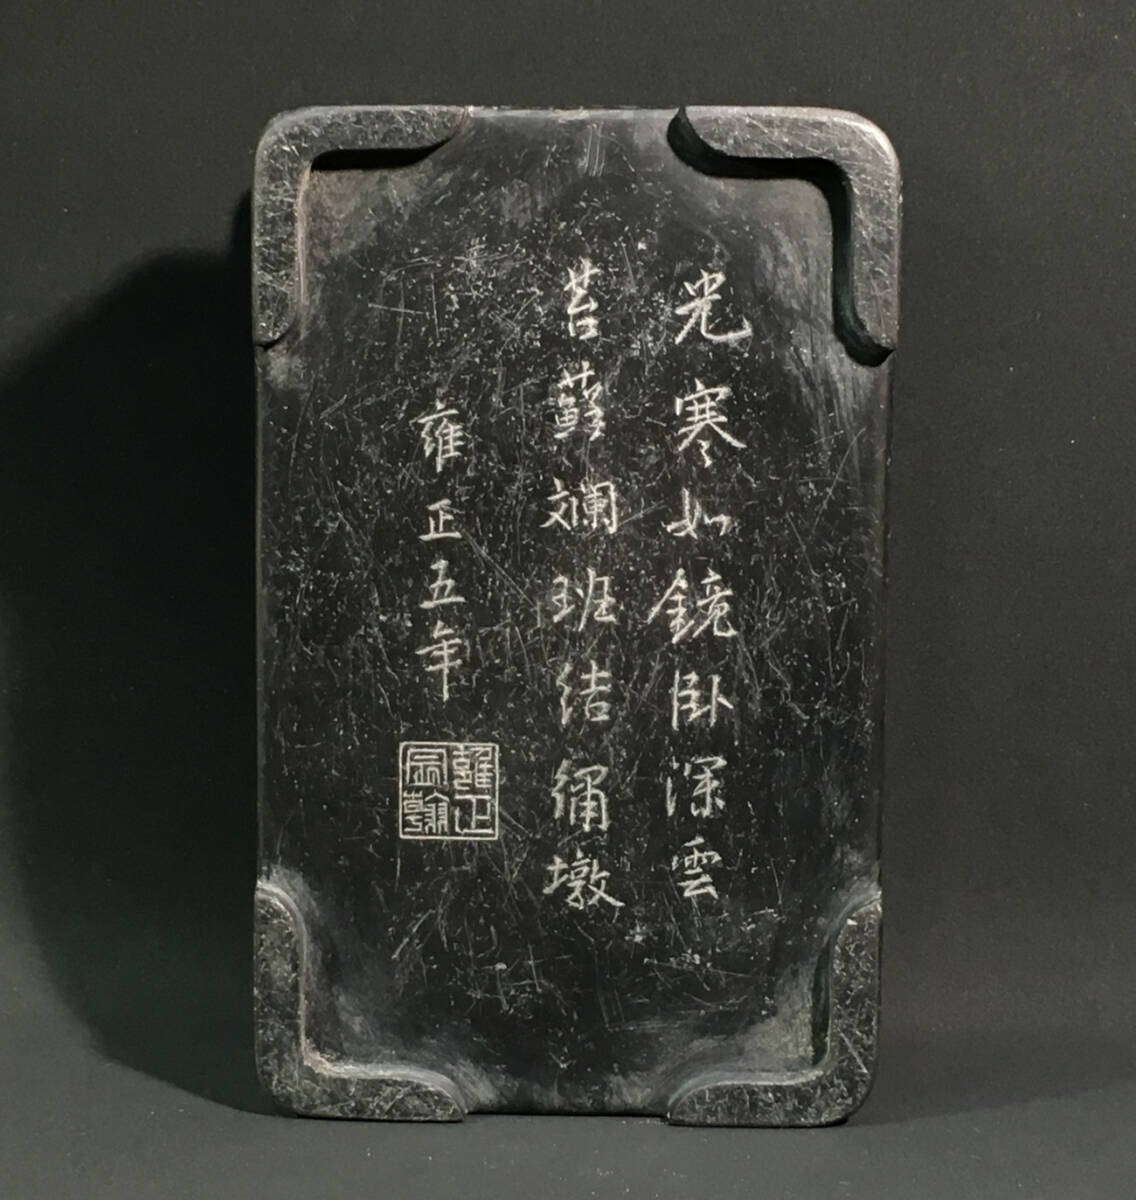 光寒如鏡卧深雲
苔蘚斕班結繡墩
雍正五年
雍正宸翰